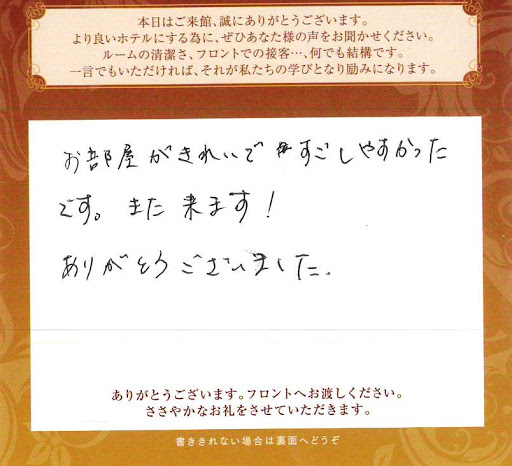 本日はご来館、誠にありがとうございます。
より良いホテルにする為に、ぜひあなた様の声をお聞かせください。
ルームの清潔さ、フロントでの接客…、何でも結構です。
一言でもいただければ、それが私たちの学びとなり励みになります。
お部屋がきれいですごしやすかった
です。また来ます!
ありがとうございました。
ありがとうございます。フロントへお渡しください。
ささやかなお礼をさせていただきます。
書ききれない場合は裏面へどうぞ